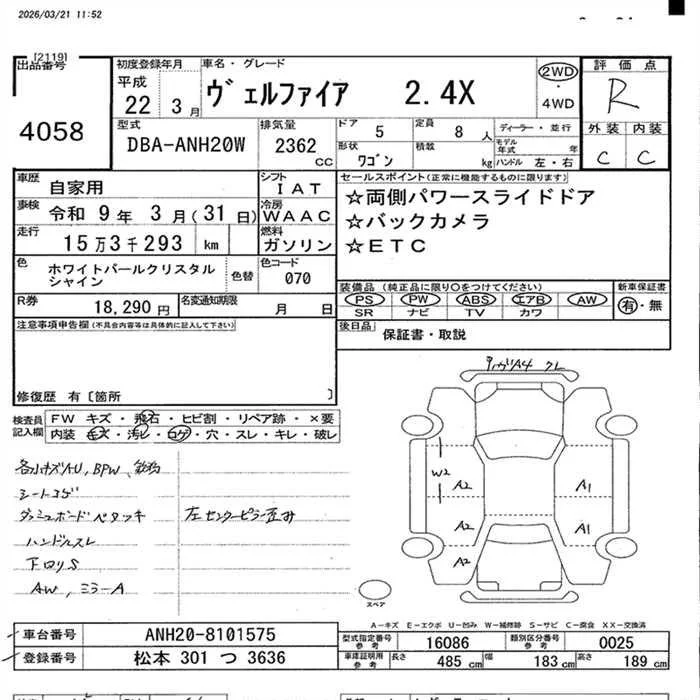 2026/03/21 11:52
[2119]
出品番号
4058
初度登録年月
平成
22 3月
車名・グレード
ヴェルファイア 2.4X
2WD
4WD
評価点
R
外装 内装
C C
型式
DBA-ANH20W
排気量
2362 cc
ドア 5
定員 8 人
ディーラー・並行
モデル年式 年
形状
ワゴン
積数 kg
ハンドル 左・右
車歴
自家用
シフト
IAT
車検 令和 9年 3月(31日)
冷房
WAAC
走行
15万3千293 km
燃料
ガソリン
セールスポイント(正常に機能するものに限ります)
☆両側パワースライドドア
☆バックカメラ
☆ETC
色
ホワイトパールクリスタル
シャイン
色替
色コード
070
装備品 (純正品に限り○をつけてください)
PS PW ABS エアB AW
SR ナビ TV カワ
新車保証書
有・無
R券
18,290円
名変通知期限
月 日
後日品 保証書・取説
注意事項申告欄(不具合内容等は具体的に記入して下さい)
修復歴 有〔箇所 〕
検査員
記入欄
FW キズ・飛石・ヒビ割・リペア跡・×要
内装 キズ・汚レ・コゲ・穴・スレ・キレ・破レ
各小キズAU, BPW、
シートコゲ
ダッシュボードベタツキ
ハンドルスレ
下回りS
AW, ミラーA
左センターピラー歪み
W2
A2
A1
A2
A1
A2
スペア
A-キズ E-エクボ U-凹み W-補修跡 S-サビ C-腐食 XX-交換済
車台番号
ANH20-8101575
登録番号
松本 301 つ 3636
型式指定番号
参考
16086
類別区分番号
参考
0025
車庫証明用
参考
長さ 485 cm
幅 183 cm
高さ 189 cm